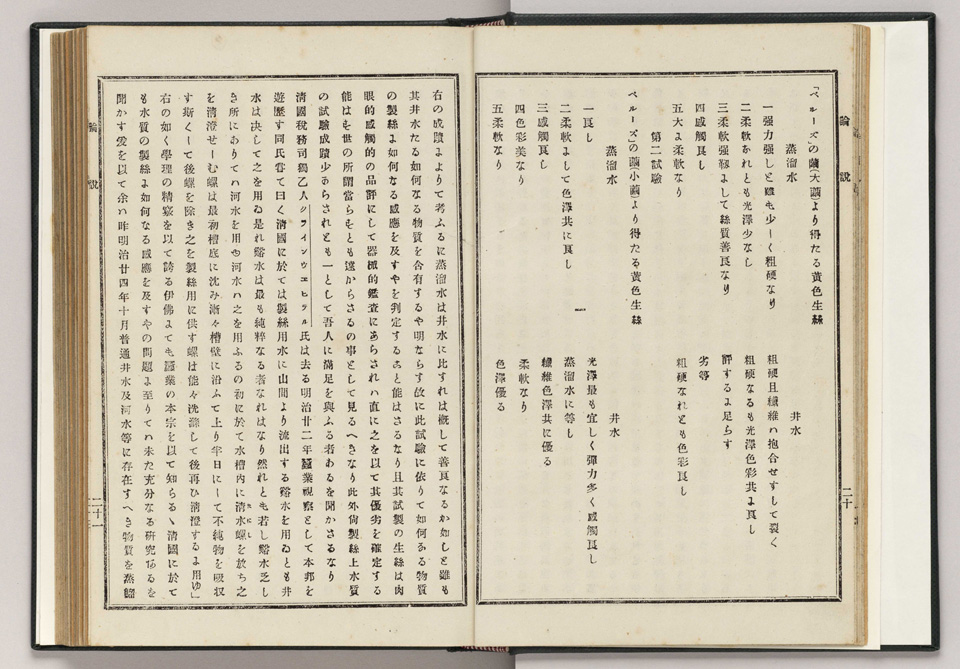 論説
二十
「ベルーズ」の繭(大繭)より得たる黄色生絲
蒸溜水
井水
一强力强しと雖も少しく粗硬なり
粗硬且纖維ハ抱合せすして裂く
二柔軟なれとも光澤少なし
粗硬なるも光澤色彩共ニ良し
三柔軟强靱よして絲質善良なり
評するよ足らす
四感觸良し
劣等
五大よ柔軟なり
粗硬なれとも色彩良し
第二試驗
ベルーズ」の繭(小繭)より得たる黄色生絲
蒸溜水
井水
一良し
光澤最も宜しく彈力多く感觸良し
二柔軟よして色澤共に良し
蒸溜水に等し
三感觸良し
纖維色澤共に優る
四色彩美なり
柔軟なり
五柔軟なり
色澤優る
右の成蹟よよりて考ふるに蒸溜水は井水に比すれは概して善良なるか如しと雖も
其井水たる如何なる物質を含有するや明ならす故に此試驗に依りて如何ある物質
の製絲よ如何なる感應を及すやを判定するあと能はさるなり且其試製の生絲は肉
眼的感觸的の品評にして器械的鑑査にあらされハ直に之を以て其優劣を確定する
能はも世の所謂當らもとも遠からさるの事として見るへきなり此外尙製絲上水質
の試驗成蹟少あらされとも一として吾人に滿足を與ふる者あるを聞かさるなり
淸國稅務司獨乙人クラインウエヒテル氏は去る明治廿二年蠶業視察として本邦を
遊歷す同氏嘗て曰く淸國に於ては製絲用水に山間より流出する谿水を用ゐとも井
水は決して之を用ゐ是れ谿水は最も純粹なる者なれはなり然れとも若し谿水乏し
き所にありてハ河水を用も河水ハ之を用ふるの初に於て水槽内に淸水螺を放ち之
を淸澄せしむ螺は最初槽底に沈み漸々槽壁に沿ふて上り半日にして不純物を吸収
す斯くして後螺を除き之を製絲用に供す螺は能々洗滌して後再ひ淸澄するよ用ゆ」
右の如く學理の精竅を以て誇る伊佛よても蠶業の本宗を以て知らるゝ淸國に於て
も水質の製絲よ如何なる感應を及すやの問題よ至りてハ未た充分なる硏究あるを
聞かす爰を以て余ハ昨明治廿四年十月普通井水及河水等に存在すへき物質を蒸餾
論説
二十一